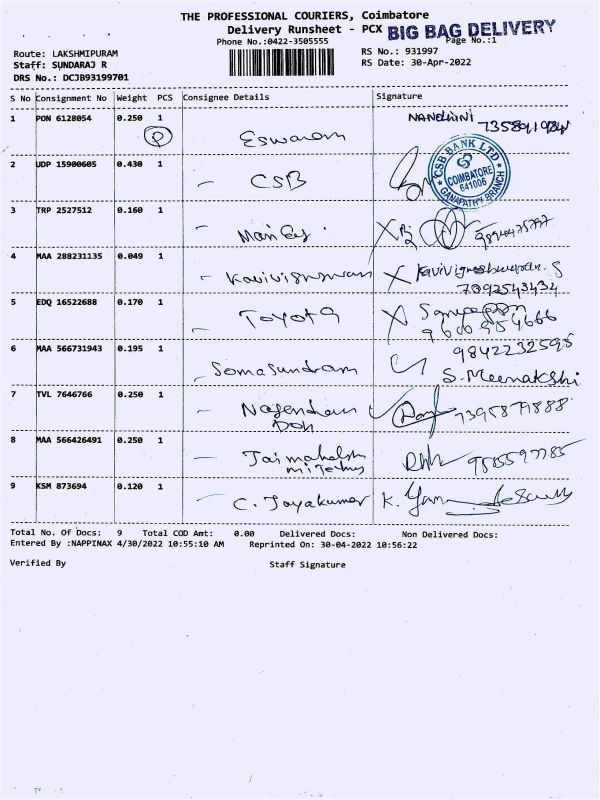 THE PROFESSIONAL COURIERS, Coimbatore
Delivery Runsheet - PCX BIG BAG DELIVERY
Phone No.:0422-3505555 Page No.:1
Route: LAKSHMIPURAM RS No.: 931997
Staff: SUNDARAJ R RS Date: 30-Apr-2022
DRS No.: DCJB93199701
S No Consignment No Weight PCS Consignee Details Signature
1 PON 6128054 0.250 1 Eswaram NANDHINI
P
2 UDP 15900605 0.430 1 - CSB
CSB BANK LTD
COIMBATORE
641006
GANAPATHY BRANCH
3 TRP 2527512 0.160 1 -
4 MAA 288231135 0.049 1 - Kavivignswaran X Kavivigneshwaran. S
7092543434
5 EDQ 16522688 0.170 1 - TOYOTA X
9600954666
6 MAA 566731943 0.195 1 - Somasundram 9842232595
S. Meenakshi
7 TVL 7646766 0.250 1 - Nagendran 7395871888
8 MAA 566426491 0.250 1 -
9 KSM 873694 0.120 1 - C. Jayakumar K.
Total No. Of Docs: 9 Total COD Amt: 0.00 Delivered Docs: Non Delivered Docs:
Entered By :NAPPINAX 4/30/2022 10:55:10 AM Reprinted On: 30-04-2022 10:56:22
Verified By Staff Signature